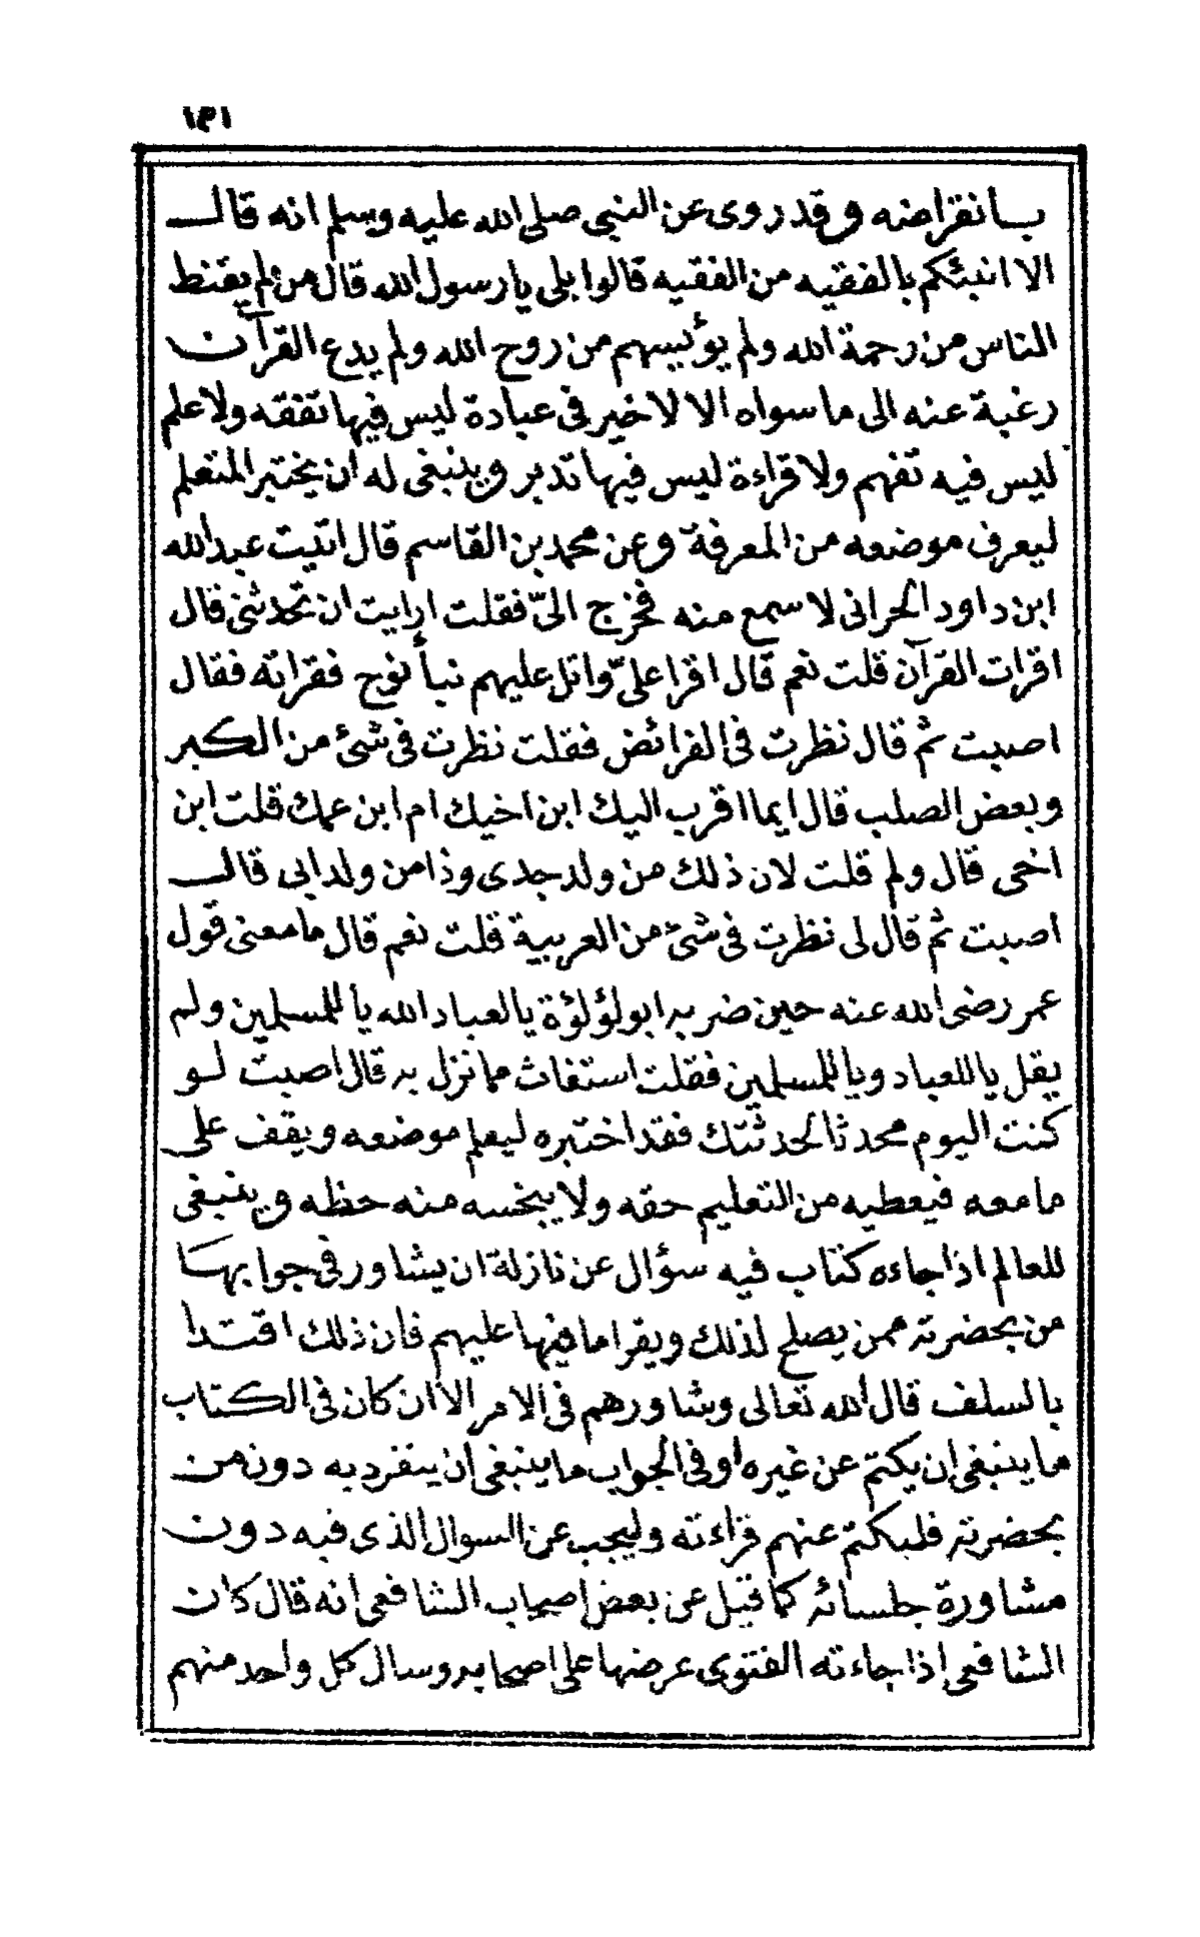 ١٣١
بانقراضه وقد روى عن النبى صلى الله عليه وسلم انه قال
الا انبئكم بالفقيه من الفقيه قالوا بلى يا رسول الله قال من لم يقنط
الناس من رحمة الله ولم يؤيسهم من روح الله ولم يدع القرآن
رغبة عنه الى ما سواه الا لا خير فى عبادة ليس فيها تفقه ولا علم
ليس فيه تفهم ولا قراءة ليس فيها تدبر وينبغى له ان يختبر المتعلم
ليعرف موضعه من المعرفة وعن محمد بن القاسم قال اتيت عبد الله
ابن داود الحرانى لا سمع منه فخرج الىّ فقلت ارايت ان تحدثنى قال
اقرات القرآن قلت نعم قال اقرا علىّ واتل عليهم نبأ نوح فقراته فقال
اصبت ثم قال نظرت فى الفرائض فقلت نظرت فى شئ من الكبر
وبعض الصلب قال ايما اقرب اليك ابن اخيك ام ابن عمك قلت ابن
اخى قال ولم قلت لان ذلك من ولد جدى وذا من ولد ابى قال
اصبت ثم قال لى نظرت فى شئ من العربية قلت نعم قال ما معنى قول
عمر رضى الله عنه حين ضربه ابو لؤلؤة يا لعباد الله يا للمسلمين ولم
يقل يا للعباد ويا للمسلمين فقلت استغاث مما نزل به قال اصبت لو
كنت اليوم محدثا لحدثتك فقد اختبره ليعلم موضعه ويقف على
ما معه فيعطيه من التعليم حقه ولا يبخسه منه حظه وينبغى
للعالم اذا جاءه كتاب فيه سؤال عن نازلة ان يشاور فى جوابها
من بحضرته ممن يصلح لذلك ويقرا ما فيها عليهم فان ذلك اقتدا
بالسلف قال الله تعالى وشاورهم فى الامر الا ان كان فى الكتاب
ما ينبغى ان يكتم عن غيره او فى الجواب ما ينبغى ان ينفرد به دون من
بحضرته فليكتم عنهم قراءته وليجب عن السوال الذى فيه دون
مشاورة جلسائه كما قيل عن بعض اصحاب الشافعى انه قال كان
الشافعى اذا جاءته الفتوى عرضها على اصحابه وسال كل واحد منهم